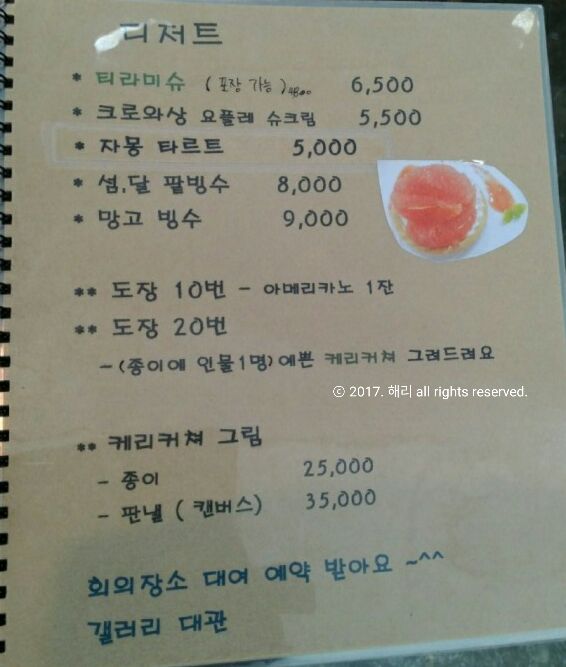 디저트
* 티라미슈 (포장 가능) 4800 6,500
* 크로와상 요플레 슈크림 5,500
* 자몽 타르트 5,000
* 섬,달 팥빙수 8,000
* 망고 빙수 9,000
** 도장 10번 - 아메리카노 1잔
** 도장 20번
-(종이에 인물1명)예쁜 케리커쳐 그려드려요
ⓒ 2017. 해리 all rights reserved.
** 케리커쳐 그림
- 종이 25,000
- 판넬 (캔버스) 35,000
회의장소 대여 예약 받아요 ~^^
갤러리 대관